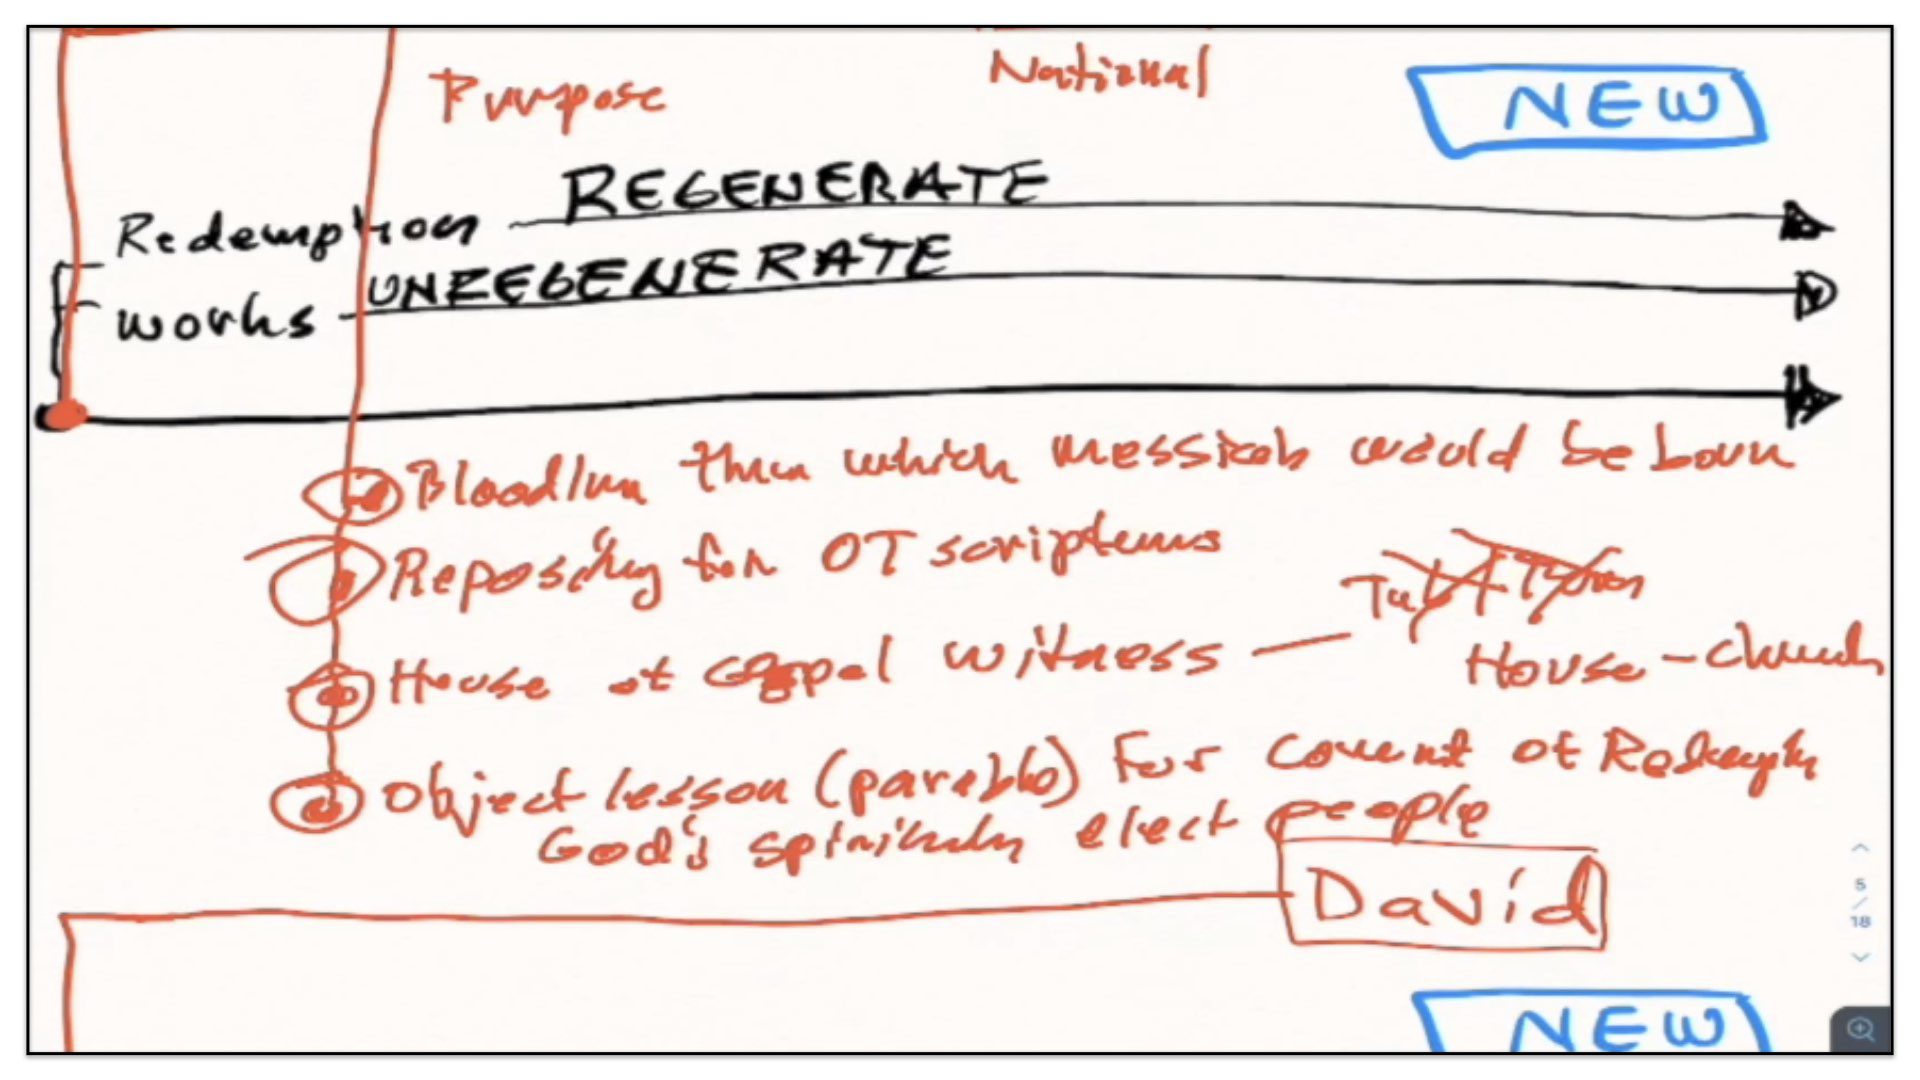 National
Purpose
NEW
REGENERATE
Redemption
UNREGENERATE
works
Bloodline thru which messiah would be born
Repository for OT scriptures
House of gospel witness — House-church
Object lesson (parable) For Covenant of Redemption
God's spiritually elect people
David
5
/
18
NEW